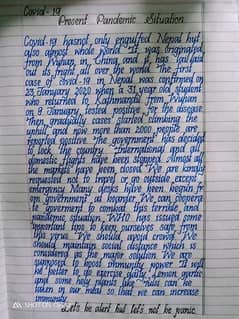 Covid-19
Present Pandemic Situation
Covid-19 hasnot only engulfed Nepal but
also almost whole world. It was originated
from Wuhan, in China, and it has laid
out its fright all over the world. The first
case of covid-19 in Nepal was confirmed on
23 January 2020 when a 31 year old student
who returned to Kathmandu from Wuhan
on 9 January, tested positive for the disease
Then gradually cases started climbing the
uphill, and now more than 2000 people are
reported positive. The government has decided
to lock the country. International and all
domestic flights have been stopped. Almost all
the markets have been closed. We are kindly
requested not to might or go outside except
emergency. Many desks have been begun
government at boarder. We can cooperate
government to combat this terrible and
pandemic situation. WHO has issued some
important tips to keep ourselves safe from
this virus. We should avoid crowd. We
should maintain social distance which is
considered as the major solution. We are
supposed to boost immunity power. It will
be better to do exercise daily. Lemon, garlic
and some holy plants like Tulsi can be
taken in our meal so that we can increase
immunity.
Let's be alert but let's not be panic.
SHOT ON